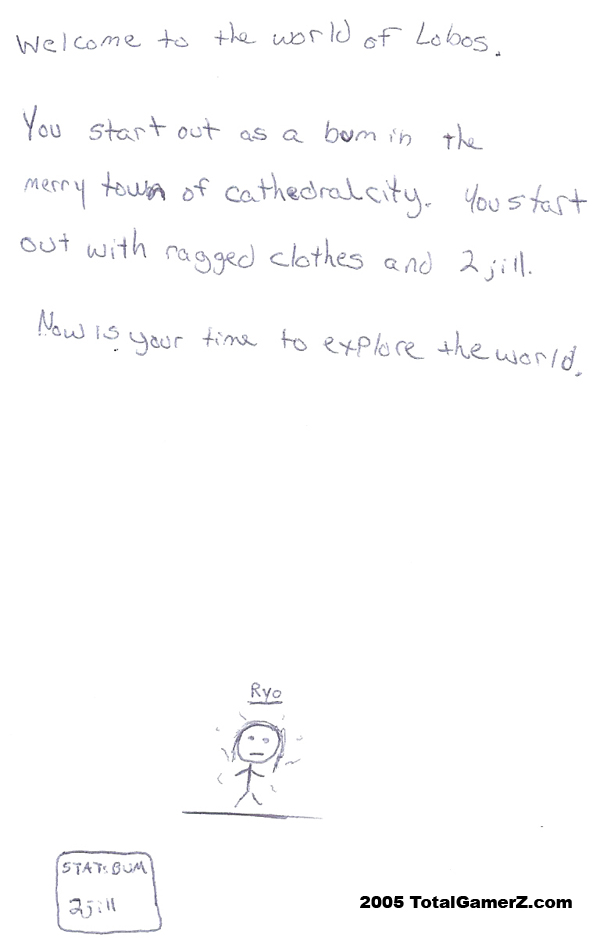 Welcome to the world of Lobos.
You start out as a bum in the
merry town of cathedralcity. You start
out with ragged clothes and 2 jill.
Now is your time to explore the world.
Ryo
STAT: BUM
2jill
2005 TotalGamerZ.com